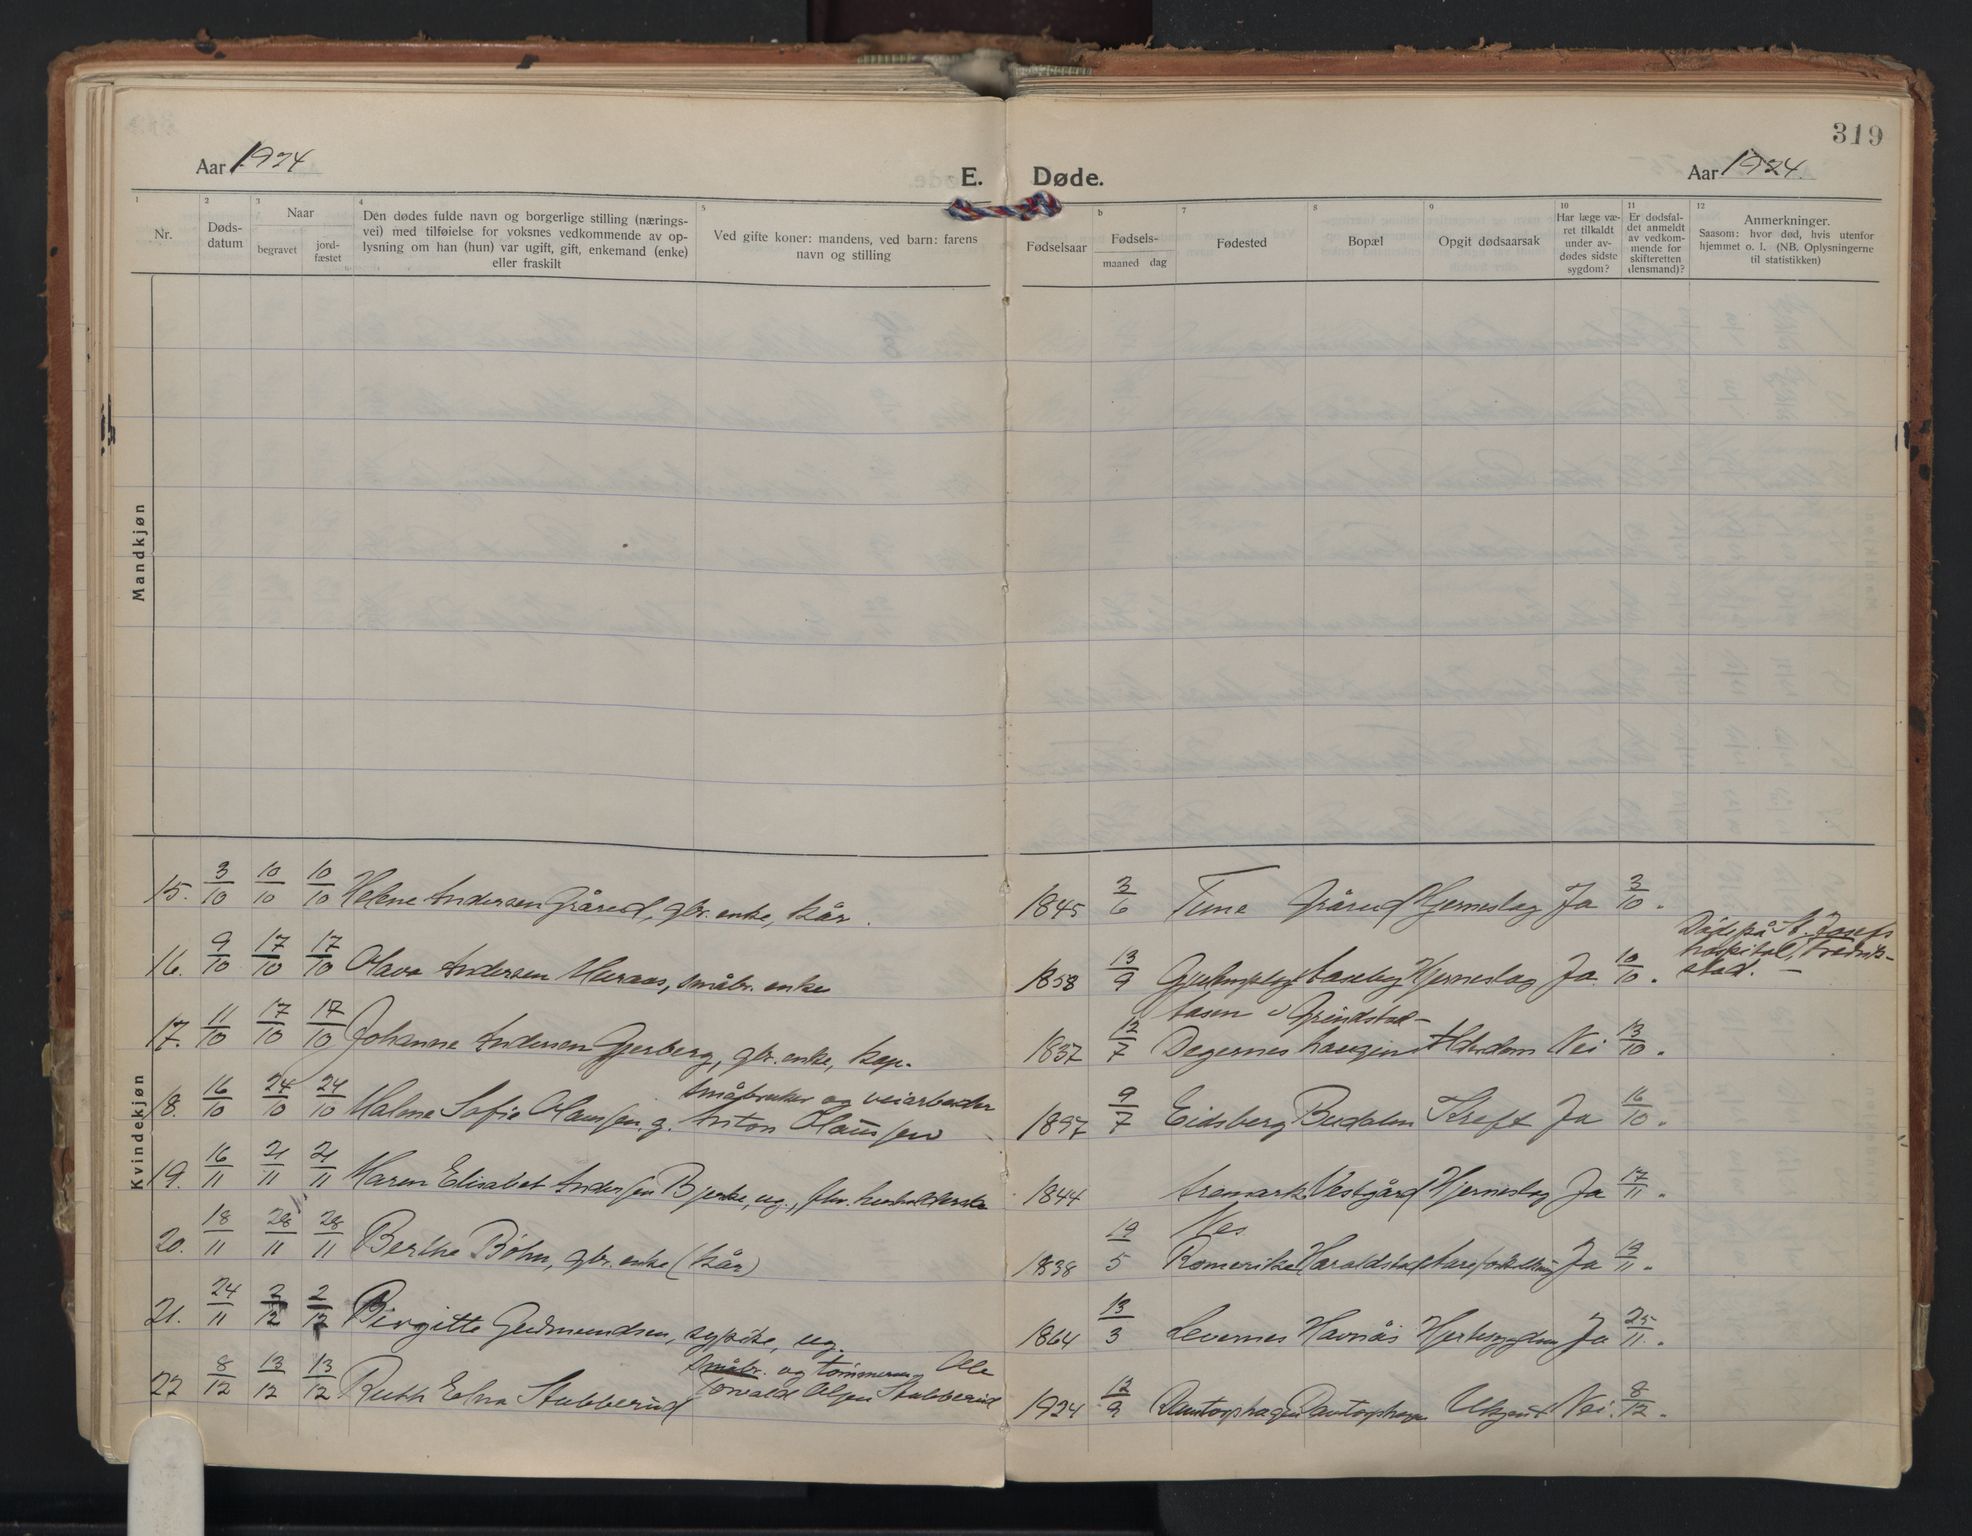 319
Aar 1924
E. Døde.
Aar 1924.
1 2 3 4 5 b 7 8 9 10 11 12
Nr.
Døds-
datum
Naar
begravet
jord-
fæstet
Den dødes fulde navn og borgerlige stilling (nærings-
vei) med tilføielse for voksnes vedkommende av op-
lysning om han (hun) var ugift, gift, enkemand (enke)
eller fraskilt
Ved gifte koner: mandens, ved barn: farens
navn og stilling
Fødselsaar
Fødsels-
maaned dag
Fødested
Bopæl
Opgit dødsaarsak
Har læge væ-
ret tilkaldt
under av-
dødes sidste
sygdom?
Er dødsfal-
det anmeldt
av vedkom-
mende for
skifteretten
(lensmand)?
Anmerkninger.
Saasom: hvor død, hvis utenfor
hjemmet o. l. (NB. Oplysningerne
til statistikken)
Mandkjøn
Kvindekjøn
15. 3/10 10/10 10/10 Helene Andersen Grårud, gbr. enke, kår. 1845 3/6 Tune Grårud Hjerneslag Ja 3/10.
16. 9/10 17/10 17/10 Olava Andersen, småbr. enke 1858 13/9 Hjerneslag Ja 10/10. Død på St. Josefs
hospital, Fredrik-
stad. –
17. 11/10 17/10 17/10 Johanne Andersen Gjerberg, gbr. enke, 1837 12/7 Degernes Alderdom Nei 13/10.
18. 16/10 24/10 24/10 Malene Sofie Olaussen, g. småbruker og veiarbeider
Anton Olaussen 1897 9/7 Eidsberg Budalen Kreft Ja 16/10.
19. 16/11 21/11 21/11 Maren Elisabet Andersen Bjerke, ug., fhv. husholderske 1844 Aremark Vestgård Hjerneslag Ja 17/11.
20. 18/11 28/11 28/11 Berthe Bøhn, gbr. enke (kår) 1838 19/5 Nes
Romerike Haraldstad Åreforkalkning Ja 19/11.
21. 24/11 2/12 2/12 Birgitte Gudmundsen, sypike, ug. 1864 13/3 Levernes Havnås Ja 25/11.
22 8/12 13/12 13/12 Ruth Edna Stubberud Småbr. og tømmerm. Ole
Torvald Olsen Stubberud 1924 12/9 Ukjent Nei. 8/12.